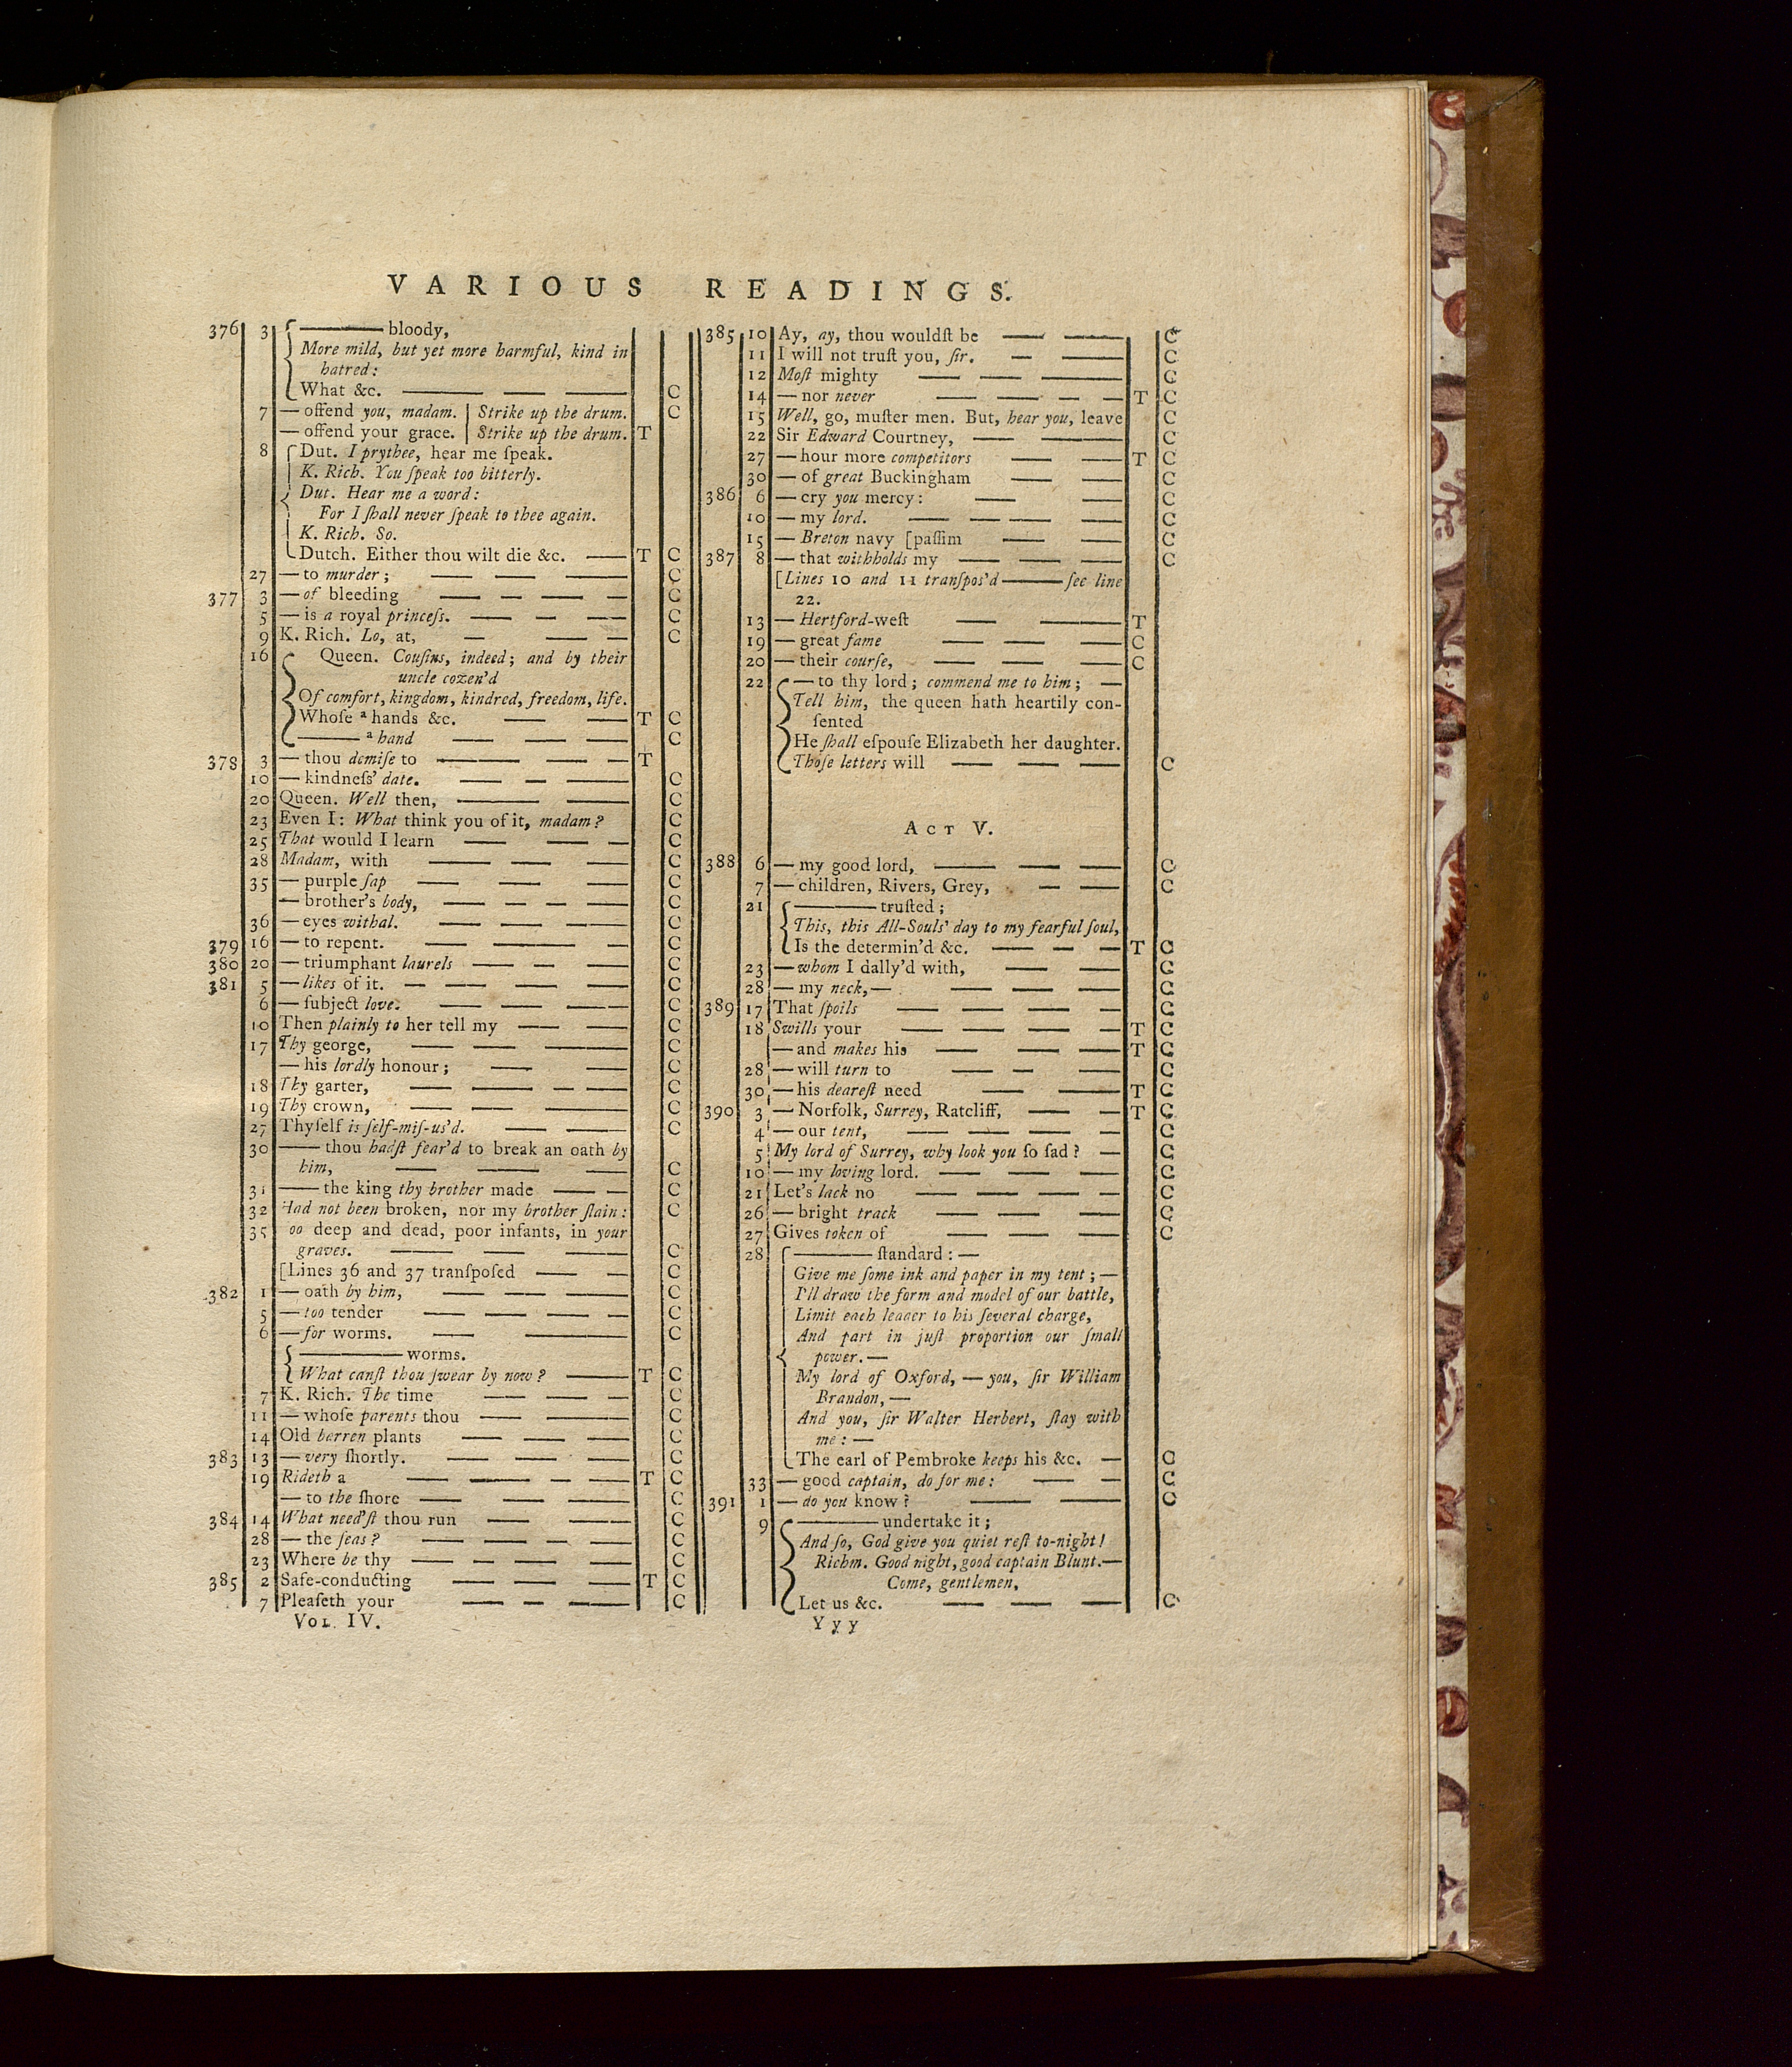 VARIOUS READINGS.
376 3 ——— bloody,
More mild, but yet more harmful, kind in
hatred:
What &c. — — — C
7 — offend you, madam. | Strike up the drum. C
— offend your grace. | Strike up the drum. T
8 Dut. I prythee, hear me ſpeak.
K. Rich. You ſpeak too bitterly.
Dut. Hear me a word:
For I ſhall never ſpeak to thee again.
K. Rich. So.
Dutch. Either thou wilt die &c. — T C
27 — to murder; — — — C
377 3 — of bleeding — — — — C
5 — is a royal princeſs. — — — C
9 K. Rich. Lo, at, — — — C
16 Queen. Couſins, indeed; and by their
uncle cozen'd
Of comfort, kingdom, kindred, freedom, life.
Whoſe ᵃ hands &c. — — T C
——— ᵃ hand — — — C
378 3 — thou demiſe to — — — T
10 — kindneſs' date. — — — C
20 Queen. Well then, — — C
23 Even I: What think you of it, madam? C
25 That would I learn — — — C
28 Madam, with — — — C
35 — purple ſap — — — C
— brother's body, — — — — C
36 — eyes withal. — — — C
379 16 — to repent. — — — C
380 20 — triumphant laurels — — — C
381 5 — likes of it. — — — — C
6 — ſubject love. — — — C
10 Then plainly to her tell my — — C
17 Thy george, — — — C
— his lordly honour; — — C
18 Thy garter, — — — — C
19 Thy crown, — — — C
27 Thyſelf is ſelf-miſ-us'd. — — C
30 —— thou hadſt fear'd to break an oath by
him, — — — C
31 —— the king thy brother made — — C
32 Had not been broken, nor my brother ſlain: C
35 oo deep and dead, poor infants, in your
graves. — — — C
[Lines 36 and 37 tranſpoſed — — C
382 1 — oath by him, — — — C
5 — too tender — — — — C
6 — for worms. — — C
——— worms.
What canſt thou ſwear by now? — T C
7 K. Rich. The time — — — C
11 — whoſe parents thou — — — C
14 Old barren plants — — — C
383 13 — very ſhortly. — — — C
19 Rideth a — — — — T C
— to the ſhore — — — C
384 14 What need'ſt thou run — — C
28 — the ſeas? — — — — C
23 Where be thy — — — — C
385 2 Safe-conducting — — — T C
7 Pleaſeth your — — — C
VOL. IV.
385 10 Ay, ay, thou wouldſt be — — C
11 I will not truſt you, ſir. — — C
12 Moſt mighty — — — C
14 — nor never — — — — T C
15 Well, go, muſter men. But, hear you, leave C
22 Sir Edward Courtney, — — C
27 — hour more competitors — — T C
30 — of great Buckingham — — C
386 6 — cry you mercy: — — C
10 — my lord. — — — — C
15 — Breton navy [paſſim — — C
387 8 — that withholds my — — — C
[Lines 10 and 11 tranſpos'd —— ſee line
22.
13 — Hertford-weſt — — T
19 — great fame — — — C
20 — their courſe, — — — C
22 — to thy lord; commend me to him; —
Tell him, the queen hath heartily con-
ſented
He ſhall eſpouſe Elizabeth her daughter.
Thoſe letters will — — — C
ACT V.
388 6 — my good lord, — — — C
7 — children, Rivers, Grey, — — C
21 ——— truſted;
This, this All-Souls' day to my fearful ſoul,
Is the determin'd &c. — — — T C
23 — whom I dally'd with, — — C
28 — my neck, — — — — C
389 17 That ſpoils — — — — C
18 Swills your — — — — T C
— and makes his — — — T C
28 — will turn to — — — C
30 — his deareſt need — — T C
390 3 — Norfolk, Surrey, Ratcliff, — — T C
4 — our tent, — — — — C
5 My lord of Surrey, why look you ſo ſad? — C
10 — my loving lord. — — — C
21 Let's lack no — — — — C
26 — bright track — — — C
27 Gives token of — — — C
28 ——— ſtandard: —
Give me ſome ink and paper in my tent; —
I'll draw the form and model of our battle,
Limit each leader to his ſeveral charge,
And part in juſt proportion our ſmall
power. —
My lord of Oxford, — you, ſir William
Brandon, —
And you, ſir Walter Herbert, ſtay with
me: —
The earl of Pembroke keeps his &c. — C
33 — good captain, do for me: — — C
391 1 — do you know? — — C
9 ——— undertake it;
And ſo, God give you quiet reſt to-night!
Richm. Good night, good captain Blunt.—
Come, gentlemen,
Let us &c. — — — C
Yyy